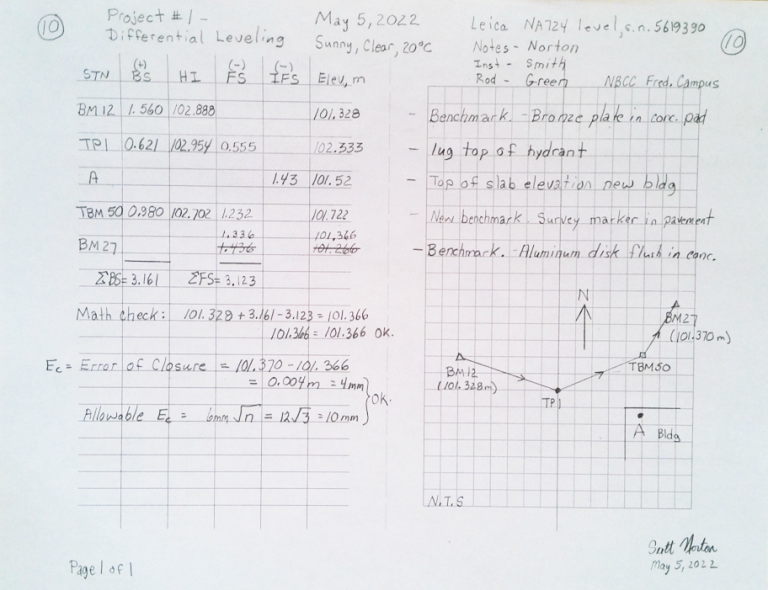 10
Project #1 -
Differential Leveling
May 5, 2022
Sunny, Clear, 20°C
Leica NA724 level, s.n. 5619390
Notes - Norton
Inst - Smith
Rod - Green NBCC Fred. Campus
10
(+) (-) (-)
STN BS HI FS IFS Elev, m
BM12 1.560 102.888 101.328 - Benchmark. - Bronze plate in conc. pad
TP1 0.621 102.954 0.555 102.333 - lug top of hydrant
A 1.43 101.52 - Top of slab elevation new bldg
TBM 50 0.980 102.702 1.232 101.722 - New benchmark. Survey marker in pavement
1.336 101.366
BM27 1.436 101.266 - Benchmark. - Aluminum disk flush in conc.
ΣBS= 3.161 ΣFS= 3.123
Math check: 101.328 + 3.161 - 3.123 = 101.366
101.366 = 101.366 OK.
Ec = Error of Closure = 101.370 - 101.366
= 0.004m = 4mm
Allowable Ec = 6mm √n = 12√3 = 10mm
OK.
N
BM27
(101.370 m)
BM12
(101.328m)
TBM50
TP1
A Bldg
N.T.S
Scott Norton
May 5, 2022
Page 1 of 1